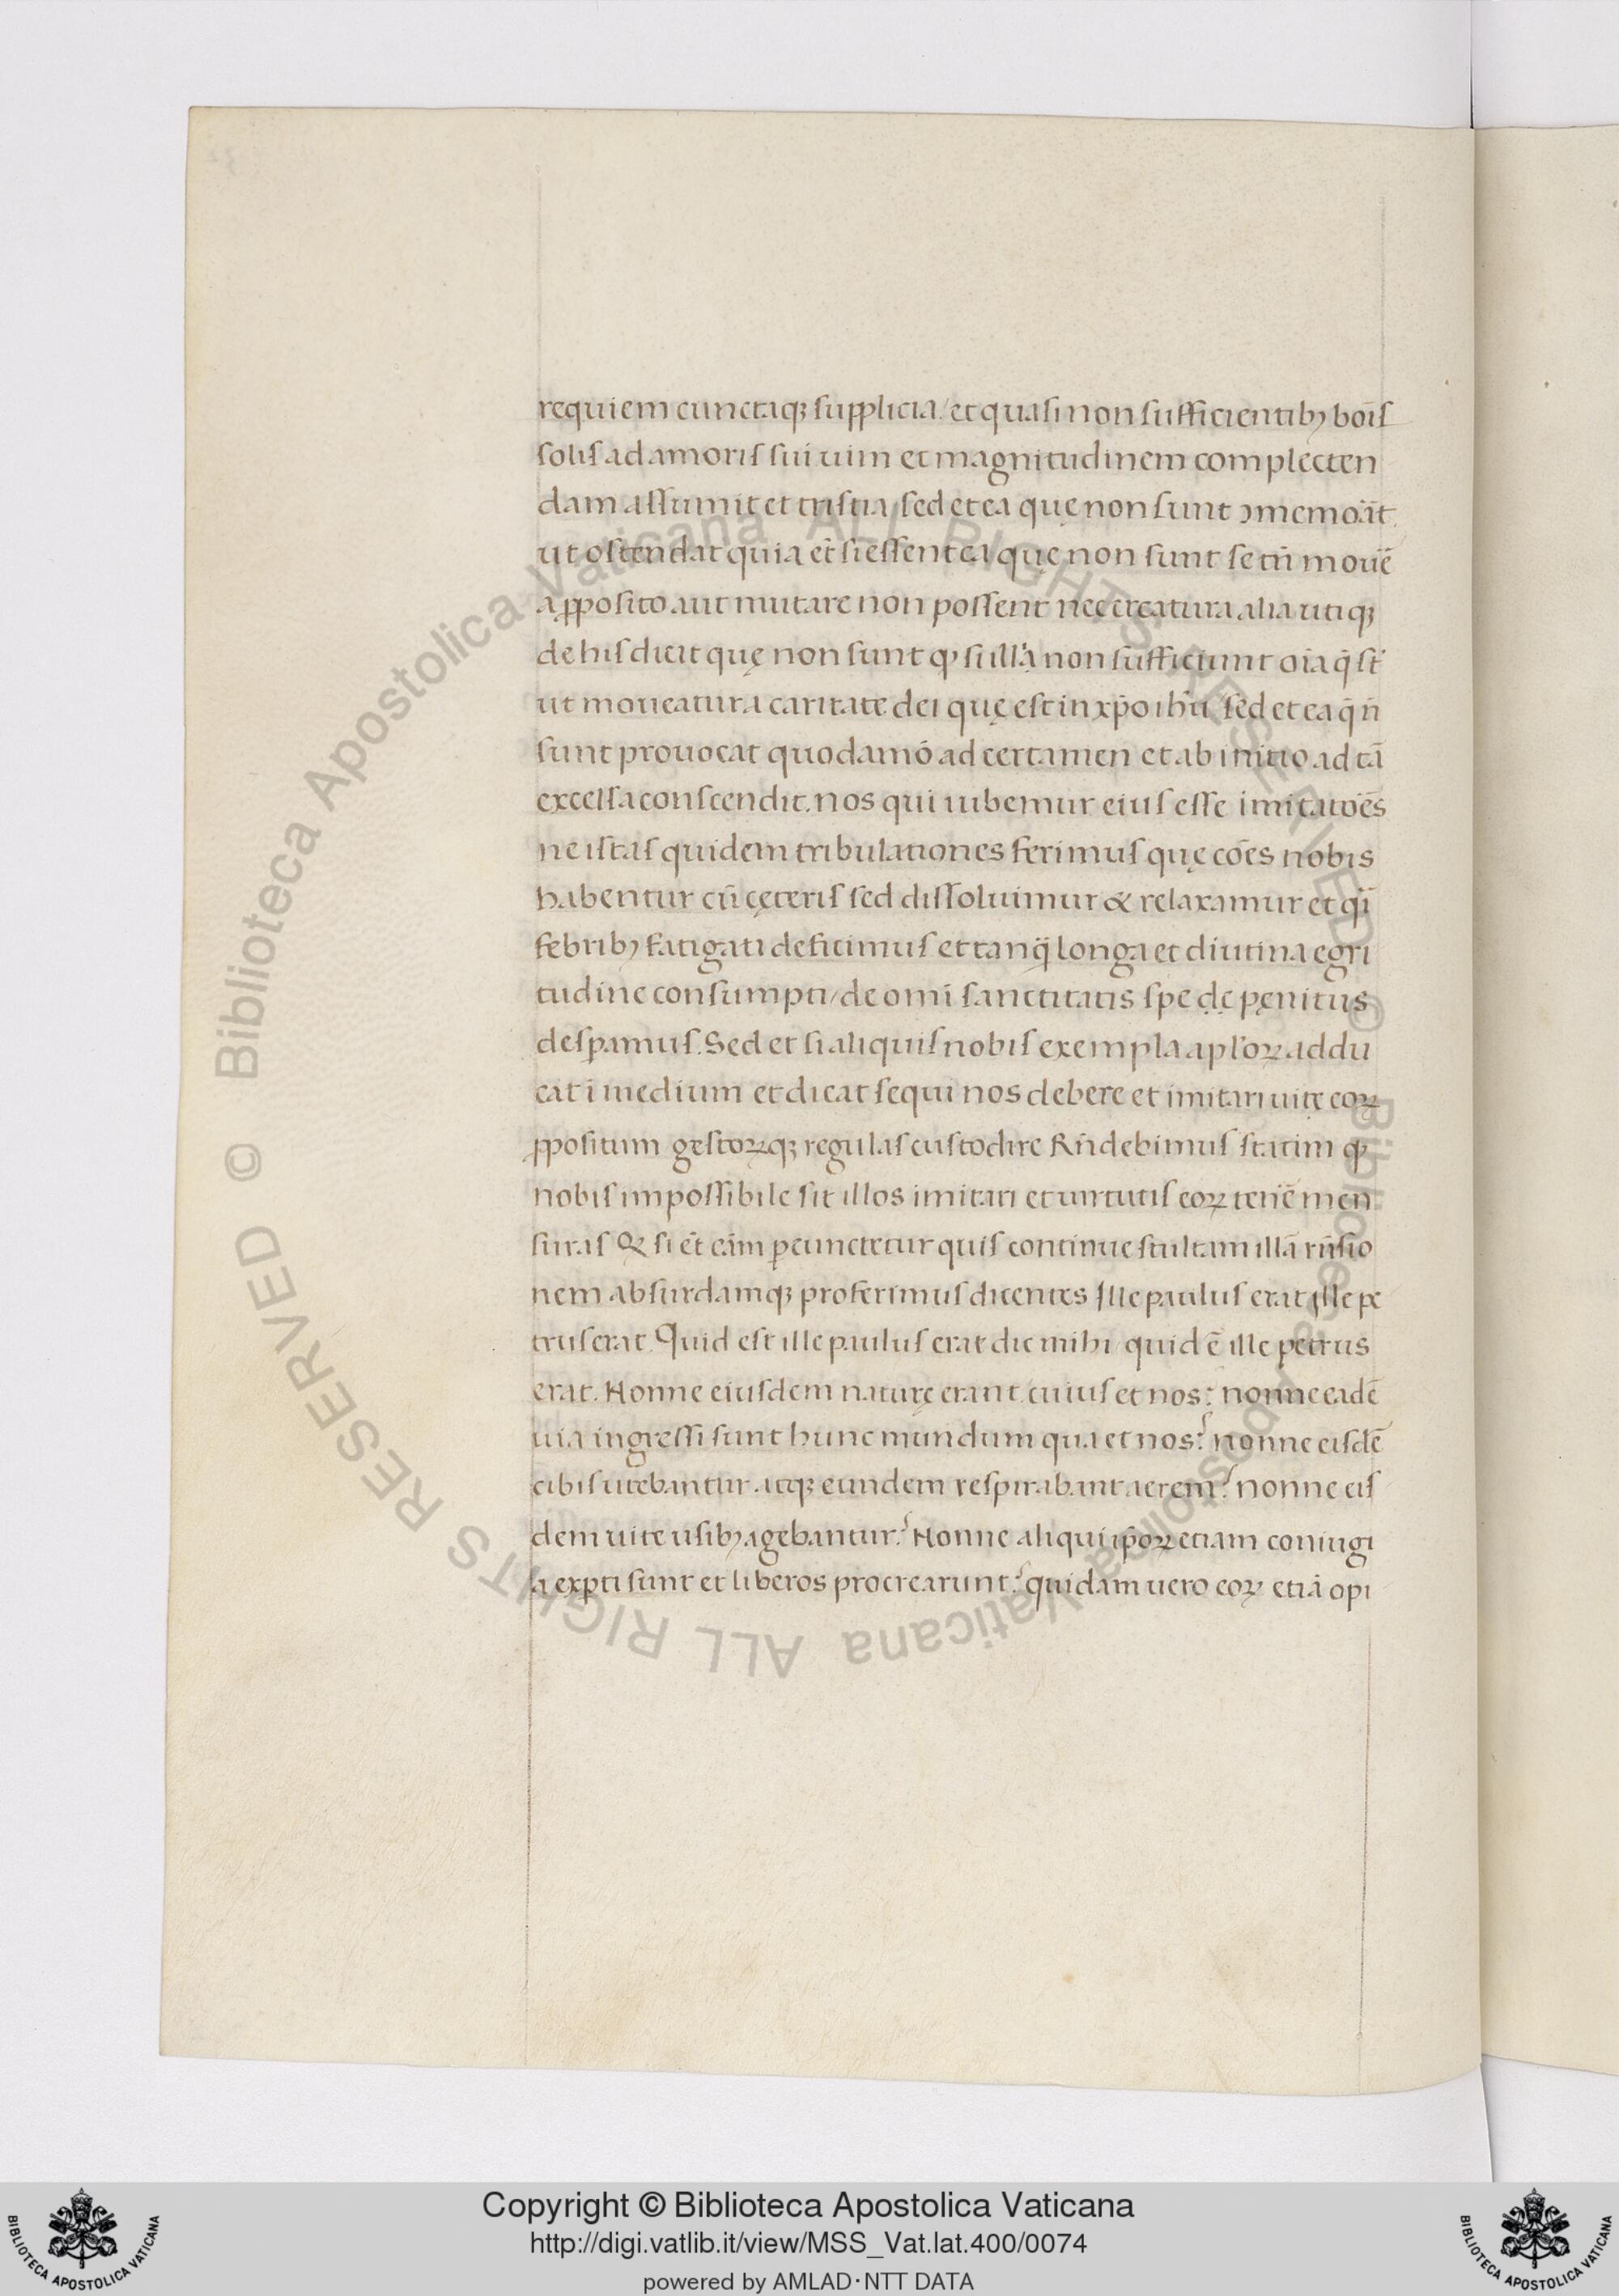 requiem cunctaqꝫ supplicia / et quasi non sufficientibꝫ bōis
solis ad amoris sui uim et magnitudinem complecten
dam assumit et tristia / sed et ea quę non sunt ꝯmemoãt
ut ostendat quia et̃ si essent ea quę non sunt se tñ mouē
a ꝓposito aut mutare non possent nec creatura alia utiqꝫ
de his dicit quę non sunt qꝫ si illã non sufficiunt oĩa q̃ st̃
ut moueatur a caritate dei quę est in xp̄o ihū sed et ea q̃ ñ
sunt prouocat quodamõ ad certamen et ab initio ad tã
excelsa conscendit. nos qui iubemur eius esse imitatoēs
ne istas quidem tribulationes ferimus quę cōes nobis
habentur cū cęteris sed dissoluimur & relaxamur et q̃i
febribꝫ fatigati deficimus et tanq̃ longa et diutina egri
tudine consumpti / de omī sanctitatis spe dẹ pẹnitus
desꝑamus. Sed et si aliquis nobis exempla apl'oꝝ addu
cat ī medium et dicat sequi nos debere et imitari uitę eoꝝ
ꝓpositum gestoꝝqꝫ regulas custodire Rñdebimus statim qꝫ
nobis impossibile sit illos imitari et uirtutis eoꝝ tenē men
suras Qꝫ si et̃ cām ꝑcunctetur quis continue stultam illā rñsio
nem absurdamqꝫ proferimus dicentes Ille paulus erat ille pe
trus erat. Quid est ille paulus erat dic mihi / quid ē ille petrus
erat. Nonne eiusdem naturę erant cuius et nos? nonne eadē
uia ingressi sunt hunc mundum qua et nos? nonne eisdē
cibis utebantur atqꝫ eundem respirabant aerem? nonne eis
dem uite usibꝫ agebantur? Nonne aliqui ip̄oꝝ etiam coniugi
a exꝑti sunt et liberos procrearunt? quidam uero eoꝝ etiā opi
© Biblioteca Apostolica Vaticana ALL RIGHTS RESERVED © Biblioteca Apostolica Vaticana ALL RIGHTS RESERVED
Copyright © Biblioteca Apostolica Vaticana
http://digi.vatlib.it/view/MSS_Vat.lat.400/0074
powered by AMLAD·NTT DATA
BIBLIOTECA APOSTOLICA VATICANA
BIBLIOTECA APOSTOLICA VATICANA